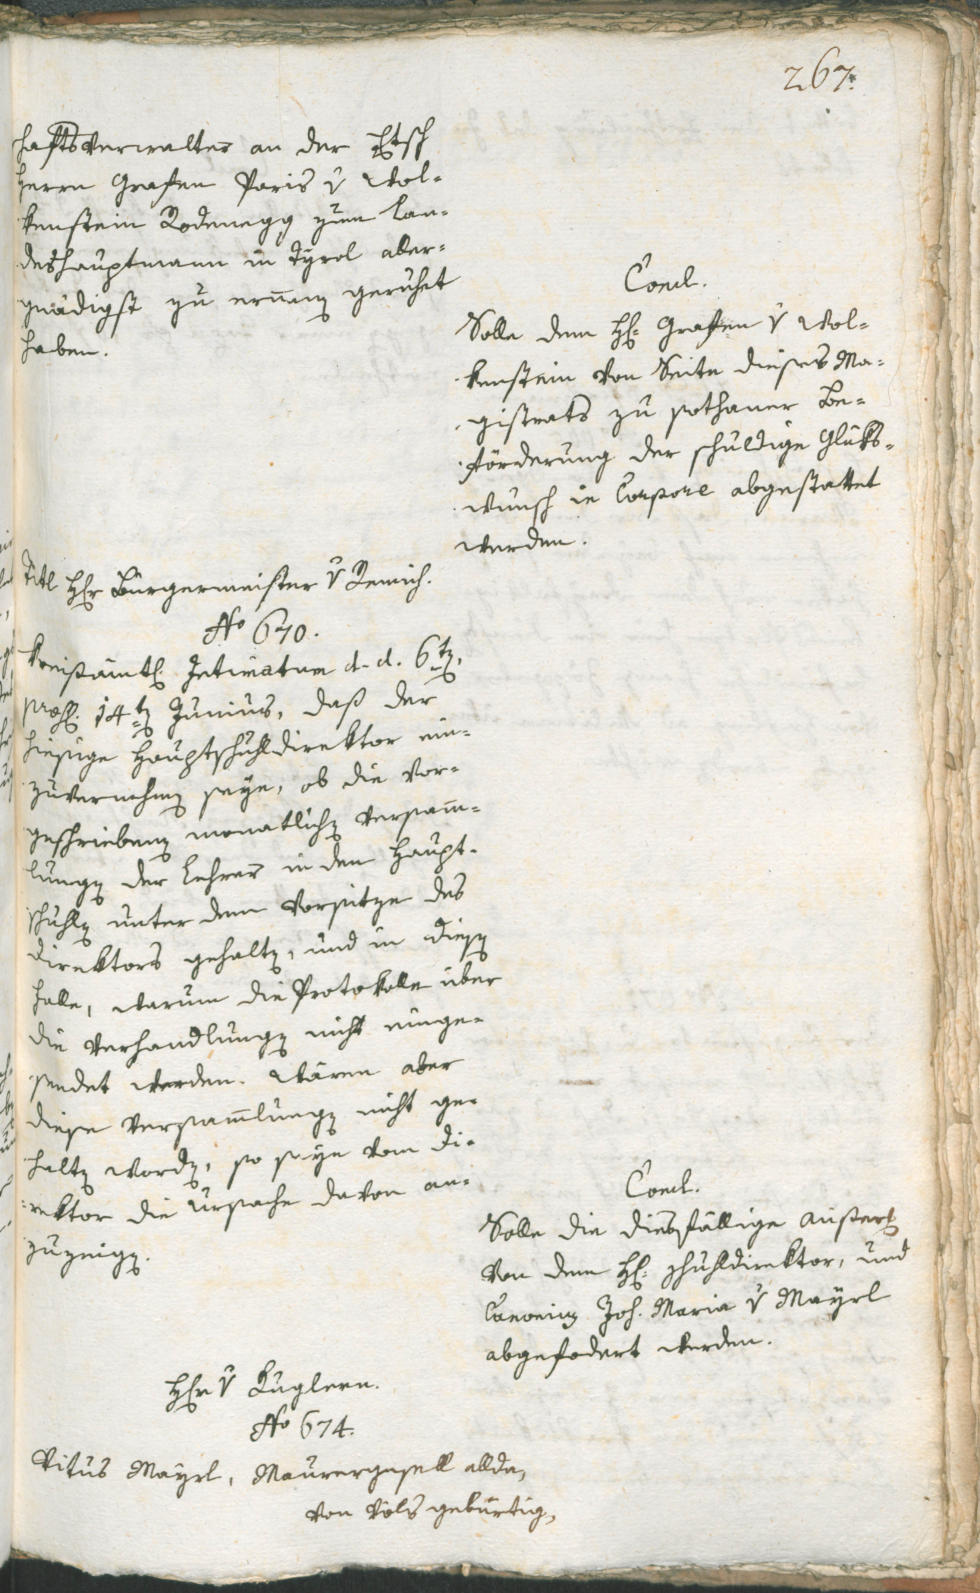 267.
haftsverwalter an der Etsch
Herrn Grafen Paris v Wol-
kenstein Rodenegg zum Lan-
deshauptmann in Tyrol aller-
gnädigst zu ernen̄en geruhet
haben.
Concl.
Solle dem H: Grafen v Wol-
kenstein von Seite dieses Ma-
gistrats zu sothaner Be-
förderung der schuldige Glüks-
wunsch in Corpore abgestattet
werden.
Titl Hr Bürgermeister v Remich.
No 670.
Kreisämtl. Intimatum d. d. 6ten,
præs. 14ten Junius, daß der
hiesige Hauptschuldirektor ein-
zuvernehmen seye, ob die vor-
geschriebenen monatlichen Versam̄-
lungen der Lehrer in den Haupt-
schulen unter dem Vorsitze des
Direktors gehalten, und in diesen
Falle, warum die Protokolle über
die Verhandlungen nicht einge-
sendet werden. Wären aber
diese Versam̄lungen nicht ge-
halten worden, so seye vom Di-
rektor die Ursache davon an-
zuzeigen.
Concl.
Solle die diesfällige Außerg
von dem H: Schuldirektor, und
Canonicus Joh. Maria v Mayrl
abgefodert werden.
Hr v Kuglern.
No 674.
Vitus Mayrl, Maurergesell allda,
von Völs gebürtig,